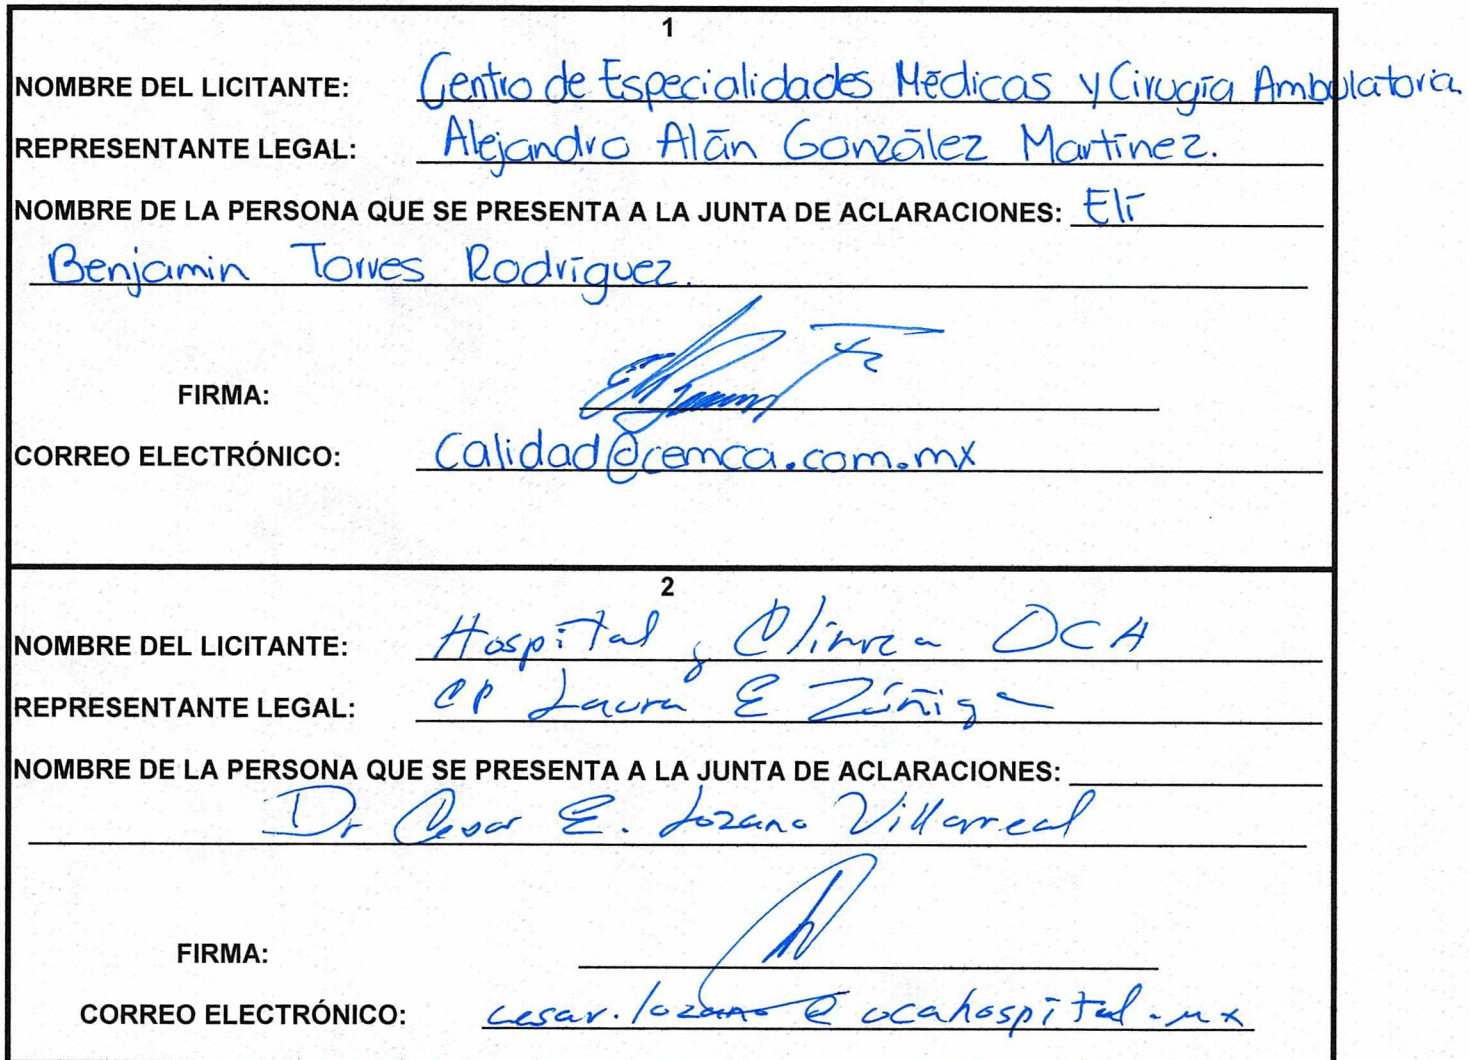 1
NOMBRE DEL LICITANTE: Centro de Especialidades Médicas y Cirugía Ambulatoria
REPRESENTANTE LEGAL: Alejandro Alán González Martínez.
NOMBRE DE LA PERSONA QUE SE PRESENTA A LA JUNTA DE ACLARACIONES: Elí
Benjamin Torres Rodríguez.
FIRMA:
CORREO ELECTRÓNICO: Calidad@cemca.com.mx
2
NOMBRE DEL LICITANTE: Hospital y Clínica OCA
REPRESENTANTE LEGAL: CP Laura E Zúñiga
NOMBRE DE LA PERSONA QUE SE PRESENTA A LA JUNTA DE ACLARACIONES:
Dr Cesar E. Lozano Villarreal
FIRMA:
CORREO ELECTRÓNICO: cesar.lozano@ocahospital.mx